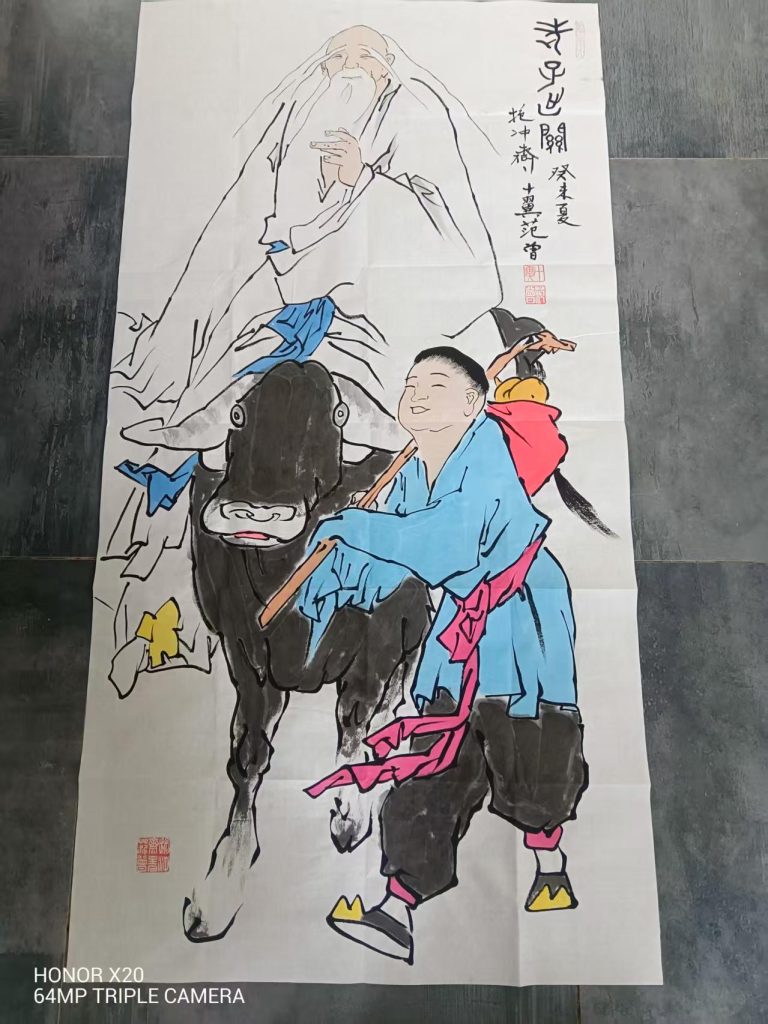 老子出關
癸未夏
抱冲齋
十翼范曾
HONOR X20
64MP TRIPLE CAMERA